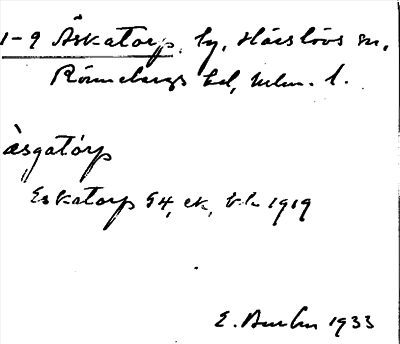 1-9 Äskatorp, by, Härslövs sn,
Rönnebergs hd, Mlm. l.
àsgatórp
Eskatorp G4, ek, bl. 1919
E. 1933